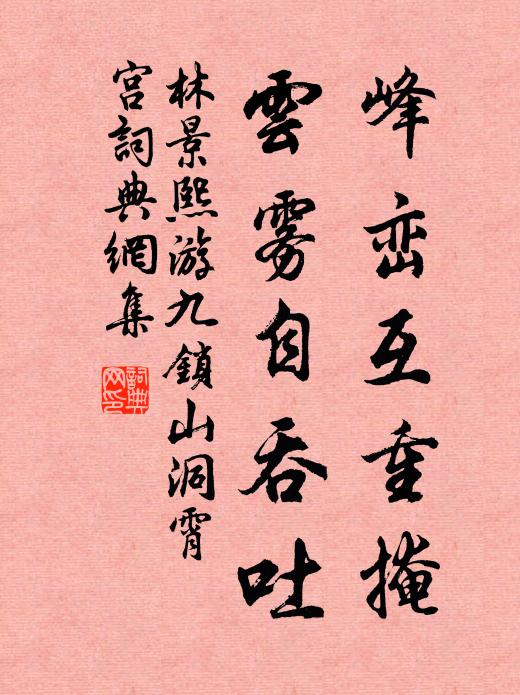 峰峦互重掩
雲雾自吞吐
林景熙游九鎖山洞霄
宫詞典網集
詞典网印